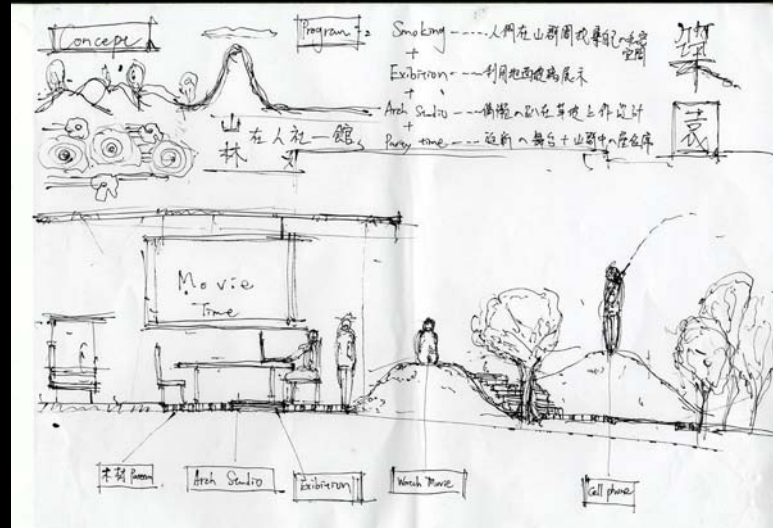 Concept
Program
Smoking ----- 人們在山群間找尋自己の私密空間
+
Exibition --- 利用地面玻璃展示
+
Arch Studio --- 慵懶の趴在草坡上作設計
+
Party time ---- の舞台+山群中の座位席
山林 在人社一館
Movie
Time
木材
Arch Studio
Exibition
Watch Movie
Cell phone